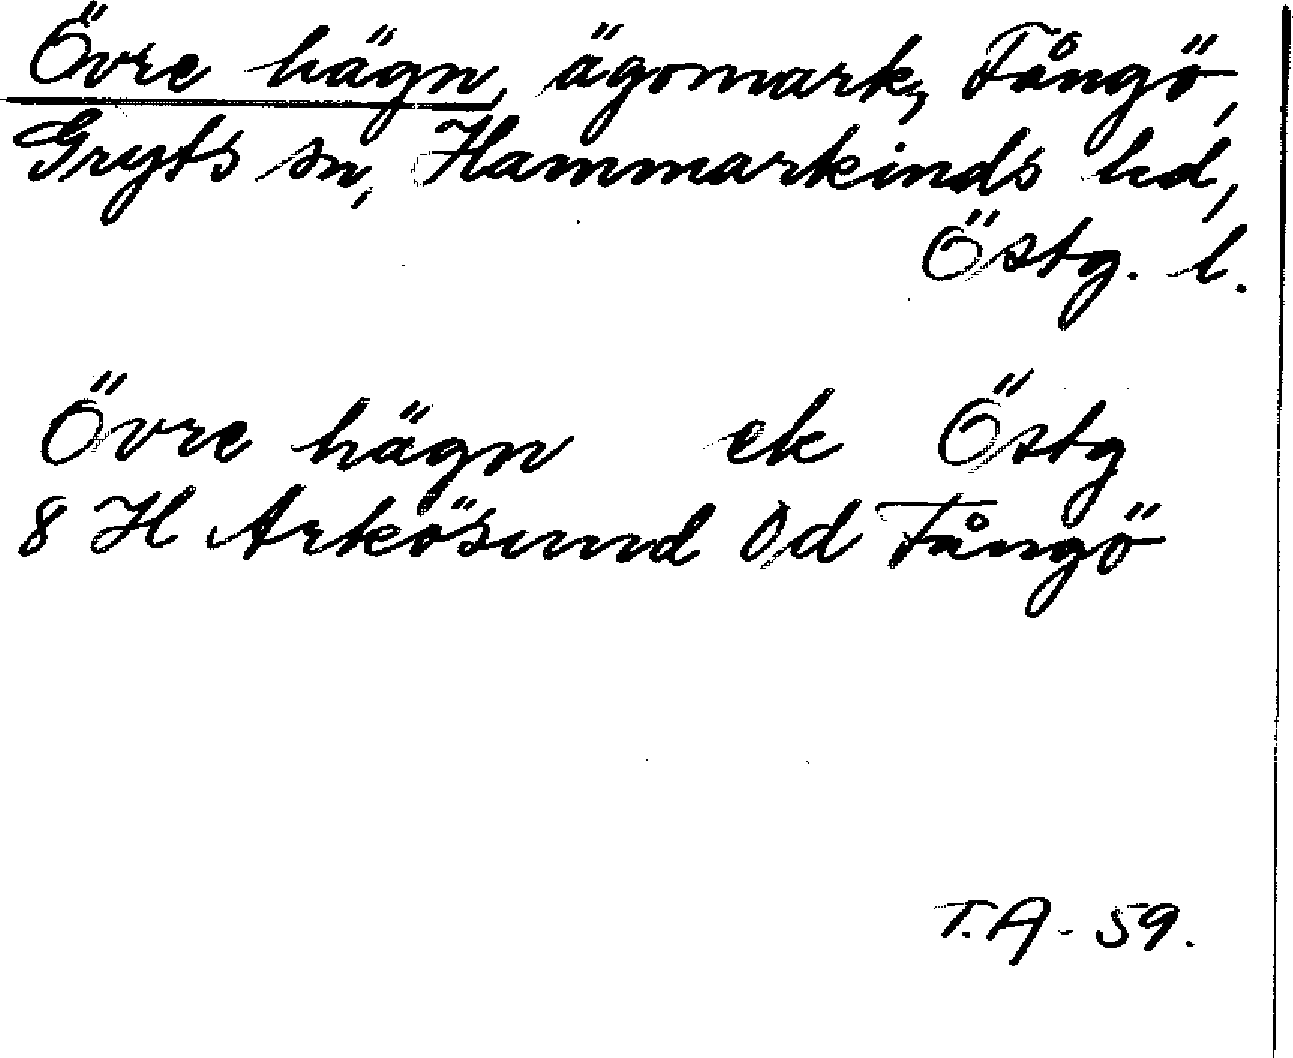 Övre hägn, ägomark, Fångö,
Gryts sn, Hammarkinds hd,
Östg. l.
Övre hägn ek Östg
8 H Arkösund 0d Fångö
T.A - 59.